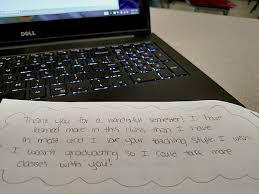 DELL
Thank you for a wonderful semester! I have
learned more in this class than I have
in most and I love your teaching style. I wish
I wasn't graduating so I could take more
classes with you!